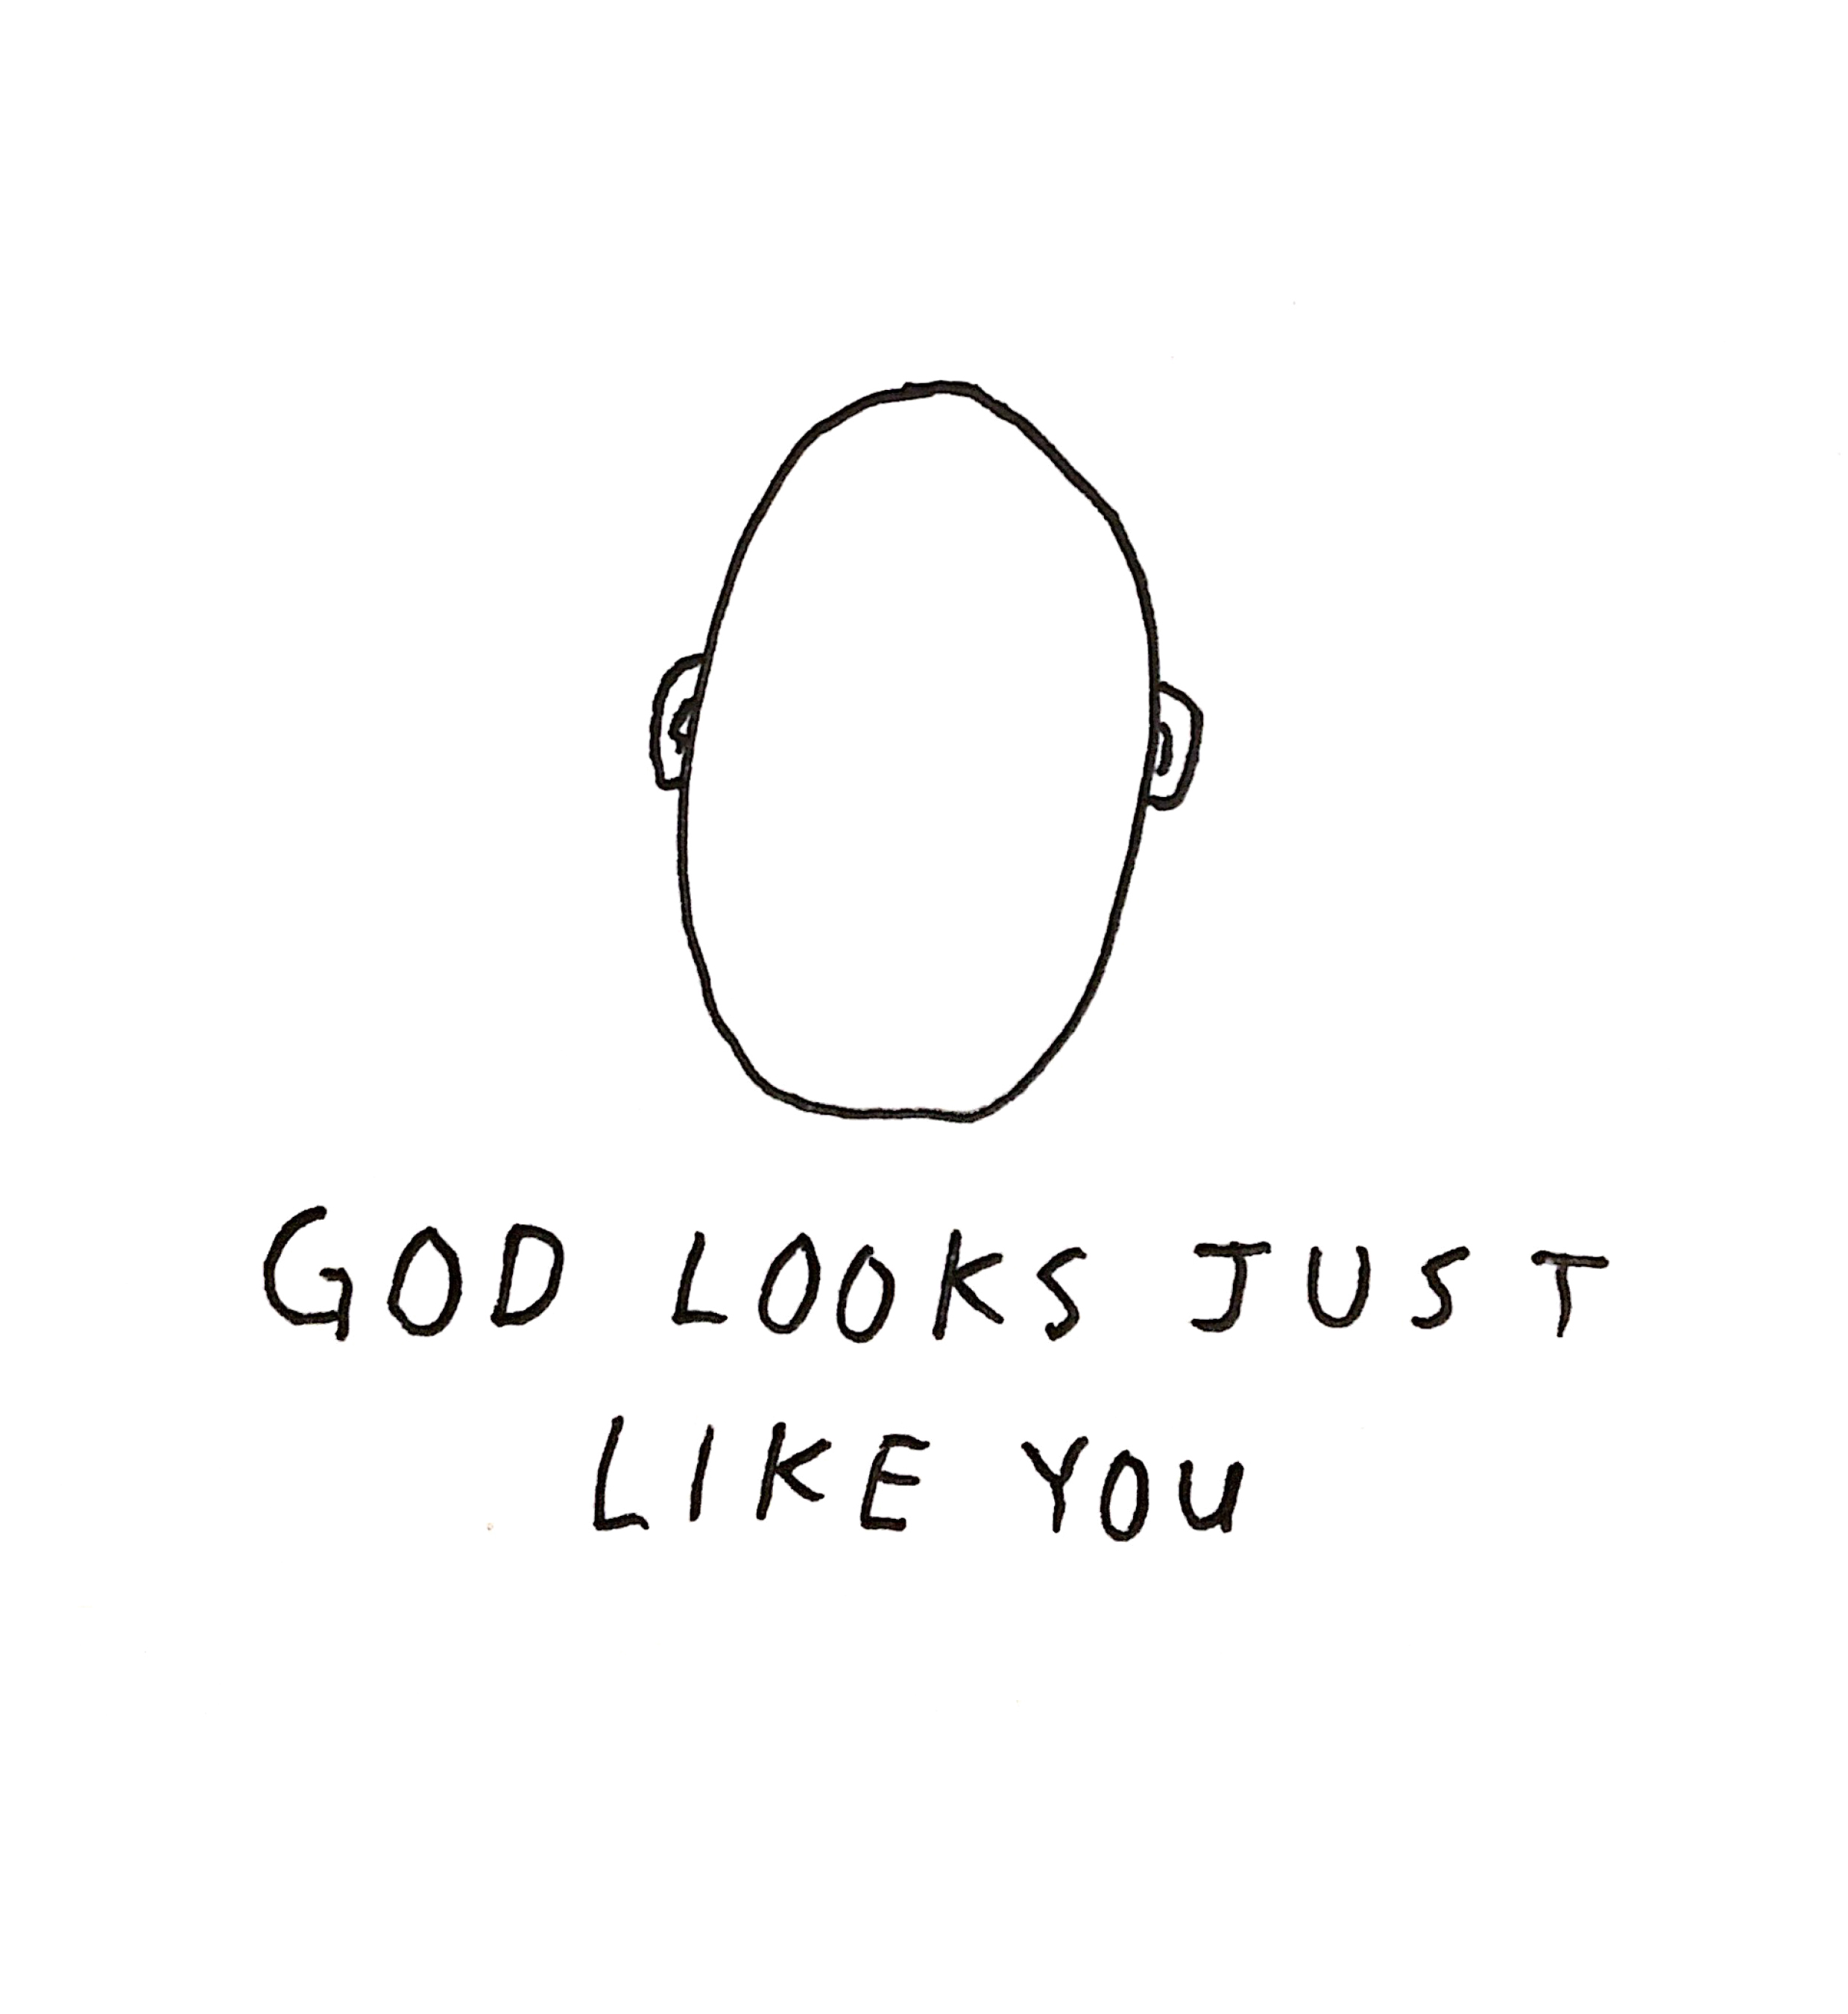 GOD LOOKS JUST
LIKE YOU